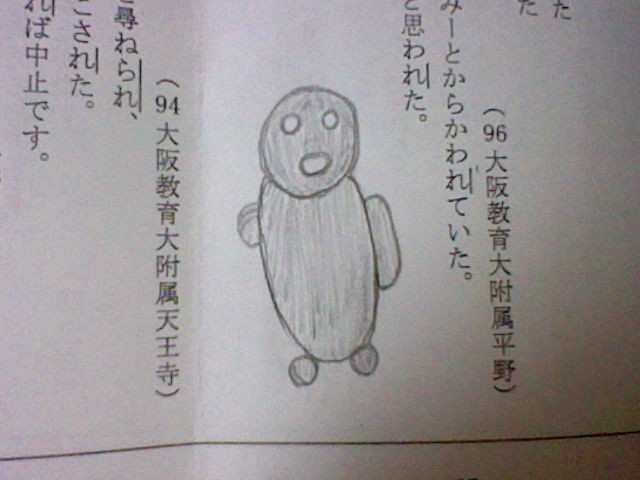 た
た
(96大阪教育大附属平野)
みーとからかわれていた。
と思われた。
(94大阪教育大附属天王寺)
尋ねられ、
こされた。
れば中止です。